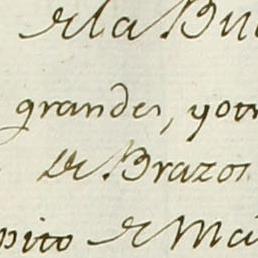 de la Bue
grandes, y otr
de Brazos
pito de Ma